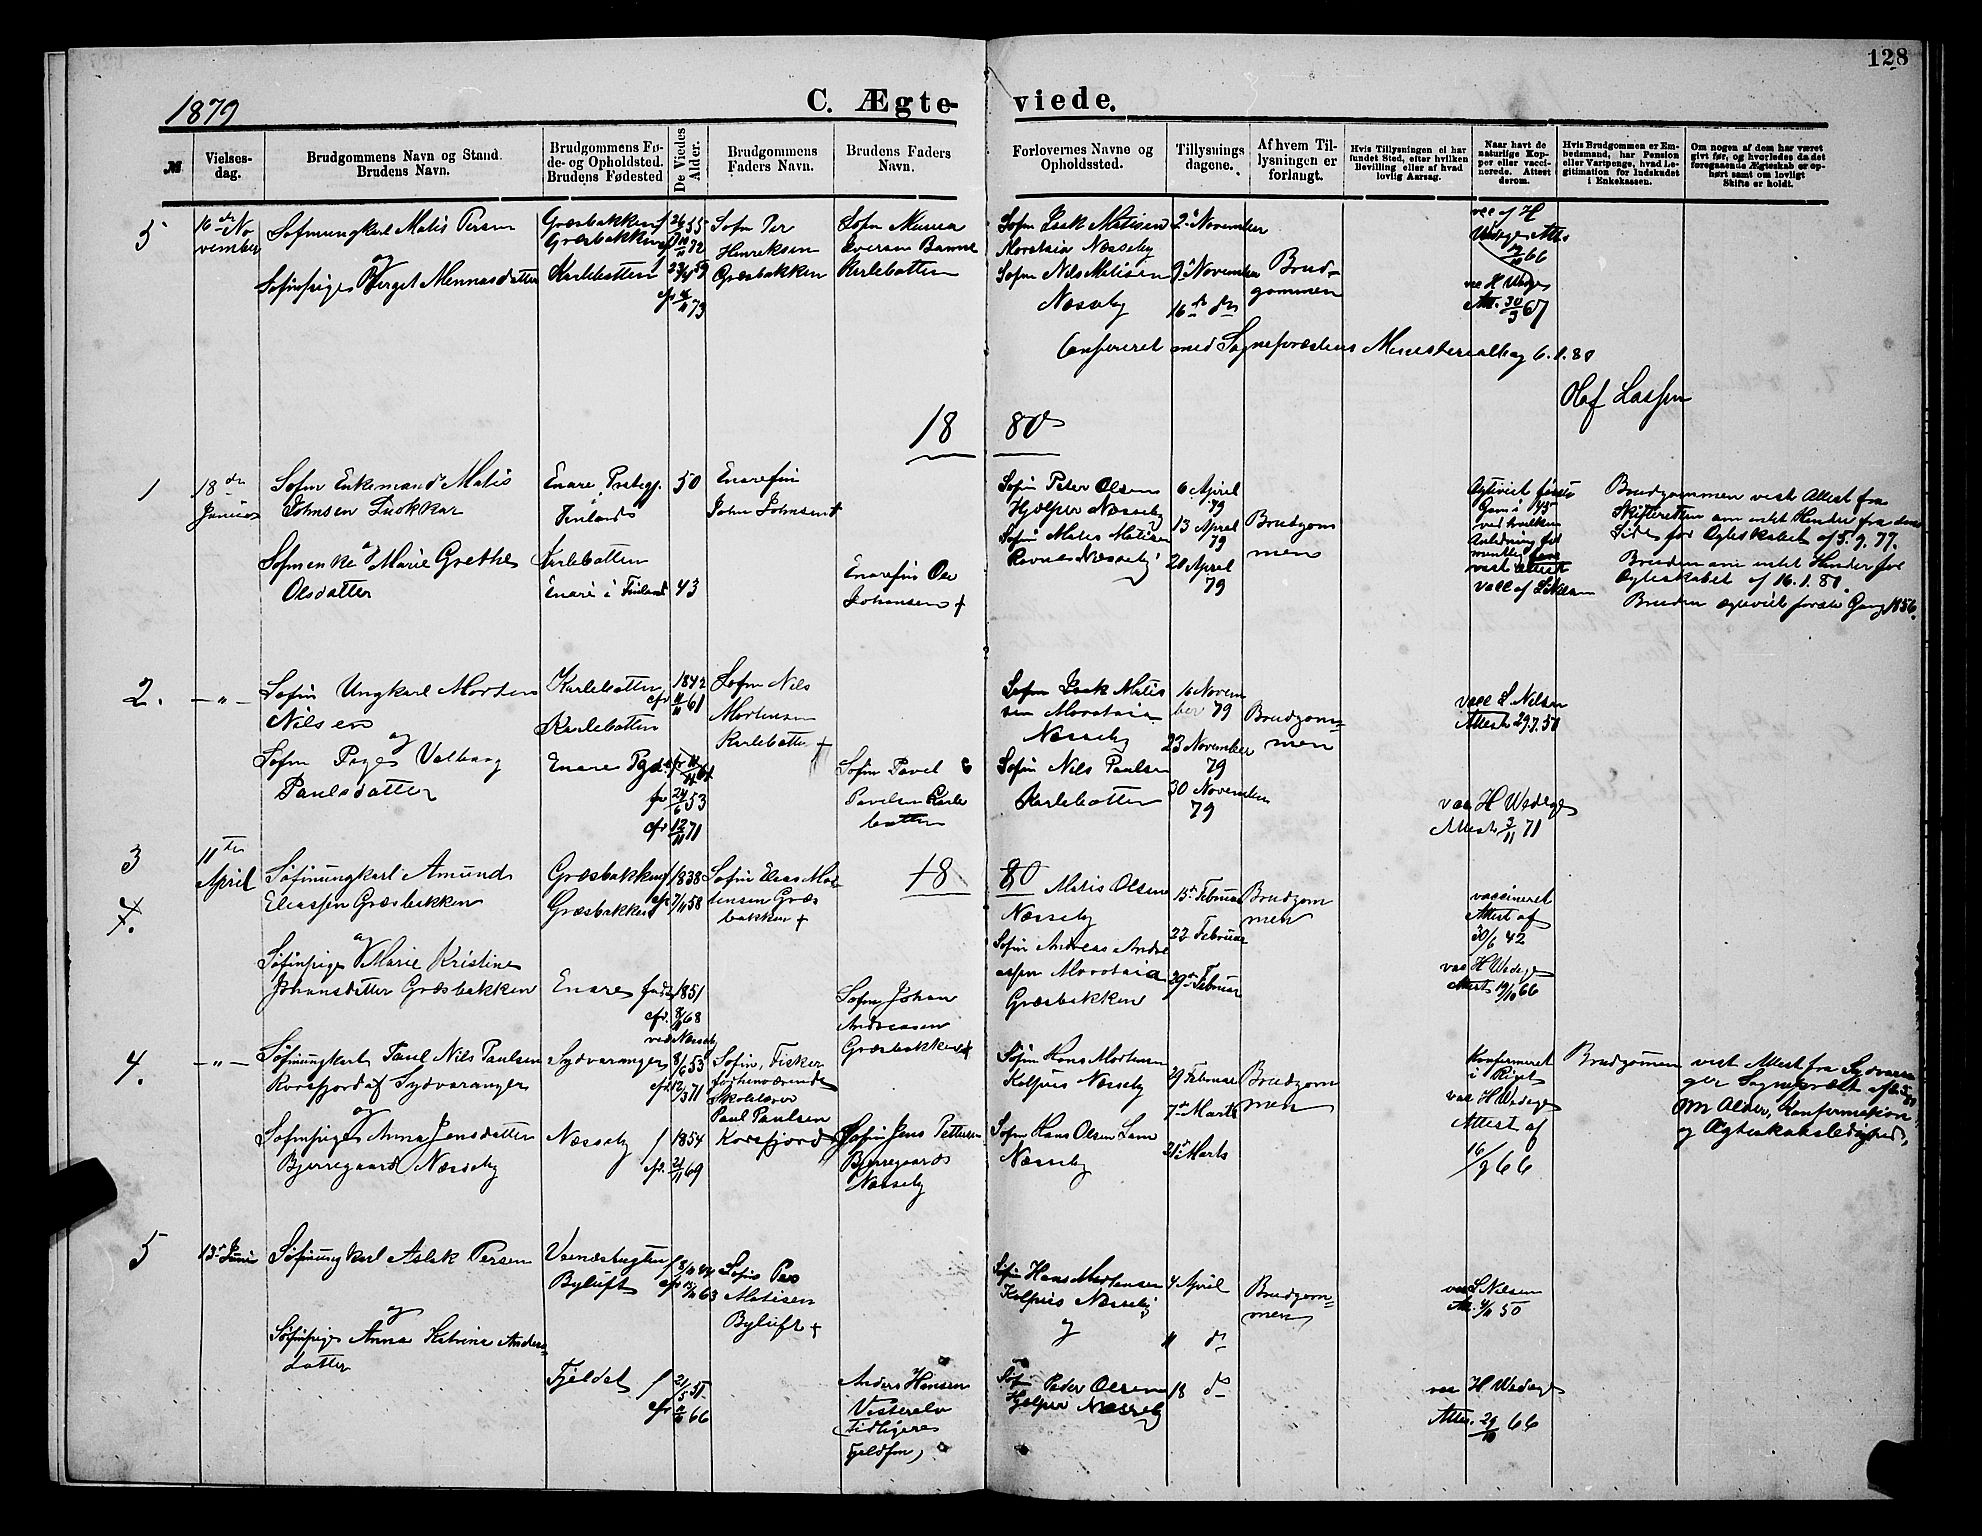 128
1879
C. Ægte- viede.
№
Vielses-
dag.
Brudgommens Navn og Stand.
Brudens Navn.
Brudgommens Fø-
de- og Opholdsted.
Brudens Fødested
De Viedes
Alder.
Brudgommens
Faders Navn.
Brudens Faders
Navn.
Forlovernes Navne og
Opholdssted.
Tillysnings
dagene.
Af hvem Til-
lysningen er
forlangt.
Hvis Tillysningen ei har
fundet Sted, efter hvilken
Bevilling eller af hvad
lovlig Aarsag.
Naar havt de
naturlige Kop-
per eller vacci-
nerede. Attest
derom.
Hvis Brudgommen er Em-
bedsmand, har Pension
eller Vartpenge, hvad Le-
gitimation for Indskudet
i Enkekassen.
Om nogen af dem har været
givt før, og hvorledes da det
foregaaende Ægteskab er op-
hørt samt om lovligt
Skifte er holdt.
5
16de No
vember
Søfinungkarl Matis Persen
og
Søfinpige Berget Mennasdatter
Græsbakken
Græsbakken
Karlebotten
Søfin Per
Henriksen
Græsbakken
Søfin Menna
Iversen
Karlebotten
Søfin Isak Matisen
Næsseby
Søfin Nils Matisen
Næsseby
2d November
9d November
16d ds
Brud-
gommen
vac af H
Wedege Att.
66
vac H Wedege
Att. 30/3 67
Confereret med Sognepræstens Ministerialbog 6.1.80
Olaf Lassen
18 80
1
18de
Januar
Søfin Enkemand Matis
Johnsen
og
Søfinenke Marie Grethe
Olsdatter
Enare Prstegj.
i
Finland
Karlebotten
Enare i Finland
50
43
Enarefin
John Johnsen +
Enarefin Ole
Johansen +
Søfin Peter Olsen
Hjelper Næsseby
Søfin Matis Matisen
Næsseby
6 April
79
13 April
79
20 April
79
Brudgom
men
Ægteviet første
Gang i
ved hvilken
Anledning
vacc af S Nilsen
Brudgommen vist Attest fra
Skifteretten om intet Hinder fra dens
Side for Ægteskabet af 5.9.77.
Bruden om intet Hinder for
Ægteskabet af 16.1.80.
Bruden ægteviet første Gang 1856.
2.
-"-
Søfin Ungkarl Morten
Nilsen
og
Søfin Pige Valborg
Paulsdatter
Karlebotten
Karlebotten
Enare
1842
61
24/6 53
12/11 71
Søfin Nils
Mortensen
Karlebotten +
Søfin Pavel
Pavelsen Karle
botten
Søfin Isak Matis
sen
Næsseby
Søfin Nils Paulsen
Karlebotten
16 Novem
ber 79
23 November
79
30 November
79
Brudgom=
men
vacc S Nilsen
Attest 29.7.50
vac H Wedege
Attest 3/11 71
3
7.
11te
April
Søfinungkarl Amund
Eliassen Græsbakken
og
Søfinpige Marie Kristine
Johansdatter Græsbakken
Græsbakken
Græsbakken
Enare
1838
7/11 58
1851
68
Næsseby
Søfin Elias Mor
tensen Græs
bakken +
Søfin Johan
Andreasen
Græsbakken +
18 80
Matis Olsen
Næsseby
Søfin Andreas Andre
assen
Græsbakken
15de Februar
22 Februar
29de Februar
Brudgom
men
vaccineret
Attest af
30/6 42
vac H Wedege
Attest 19/10 66
4.
-"-
Søfinungkarl Paul Nils Paulsen
Korsfjord af Sydvaranger
og
Søfinpige Anna Jensdatter
Bjerregaard Næsseby
Sydvaranger
Næsseby
8/6 53
12/3 71
1854
21/11 69
Søfin, Fisker
forhenværende
Skolelærer
Paul Paulsen
Korsfjord
Søfin Jens Pettersen
Bjerregaard
Næsseby
Søfin Hans Mortensen
Kolpus Næsseby
Søfin Hans Olsen Lam
Næsseby
29 Februar
7de Marts
21d Marts
Brudgom
men
Konfirmeret
i Riget
vac H Wedege
Attest af
16/9 66
Brudgommen vist Attest fra Sydvaran
ger Sognepræst
om Alder, Konfirmation
og Ægteskabsledighed.
5
13d Juni
Søfinungkarl Aslak Persen
og
Søfinpige Anna Katrine Anders
datter
Byluft
Fjeldet
63
21/5 51
66
Søfin Per
Matisen
Byluft +
Anders Hansen
Vesterelv
(tidligere
Fjeldfin)
Søfin Hans Mortensen
Kolpus Næsseby
og
Søfin Peder Olsen
Hjelper Næsseby
4 April
11 ds
18 ds
Brudgom=
men
vac S Nilsen
Att. 50
vac H Wedege
Attest 29/10 66